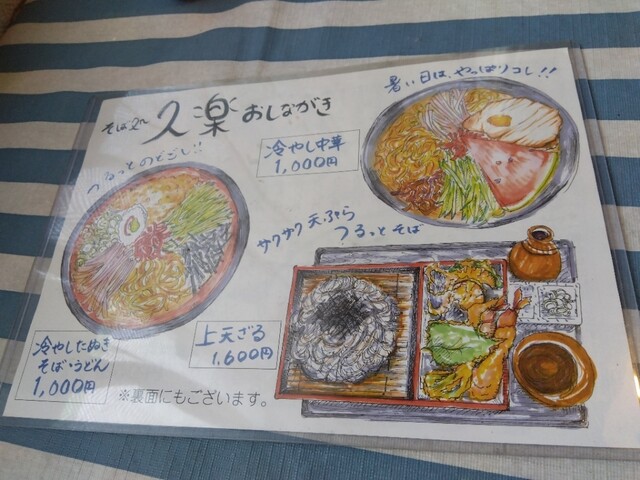 そば処 久楽 おしながき
暑い日は、やっぱりコレ!!
冷やし中華
1,000円
つるっとのどごし!!
サクサク天ぷら
つるっとそば
上天ざる
1,600円
冷やしたぬき
そば・うどん
1,000円
※裏面にもございます。